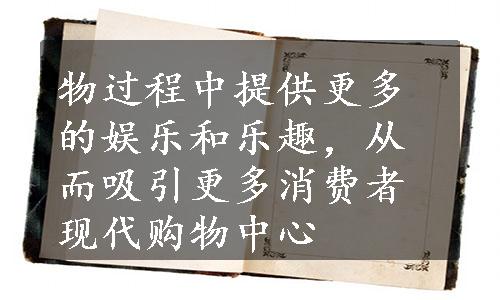 物过程中提供更多
的娱乐和乐趣，从
而吸引更多消费者
现代购物中心